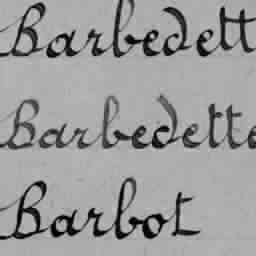 Barbedett
Barbedette
Barbot